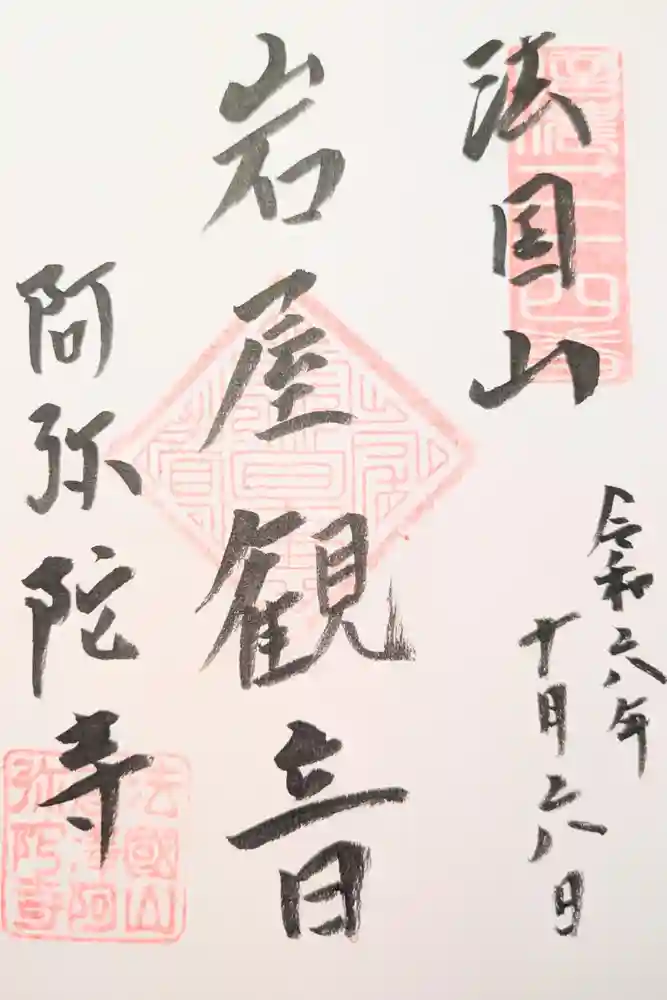 法国山
令和六年
十月六日
岩屋観音
阿弥陀寺
法國山